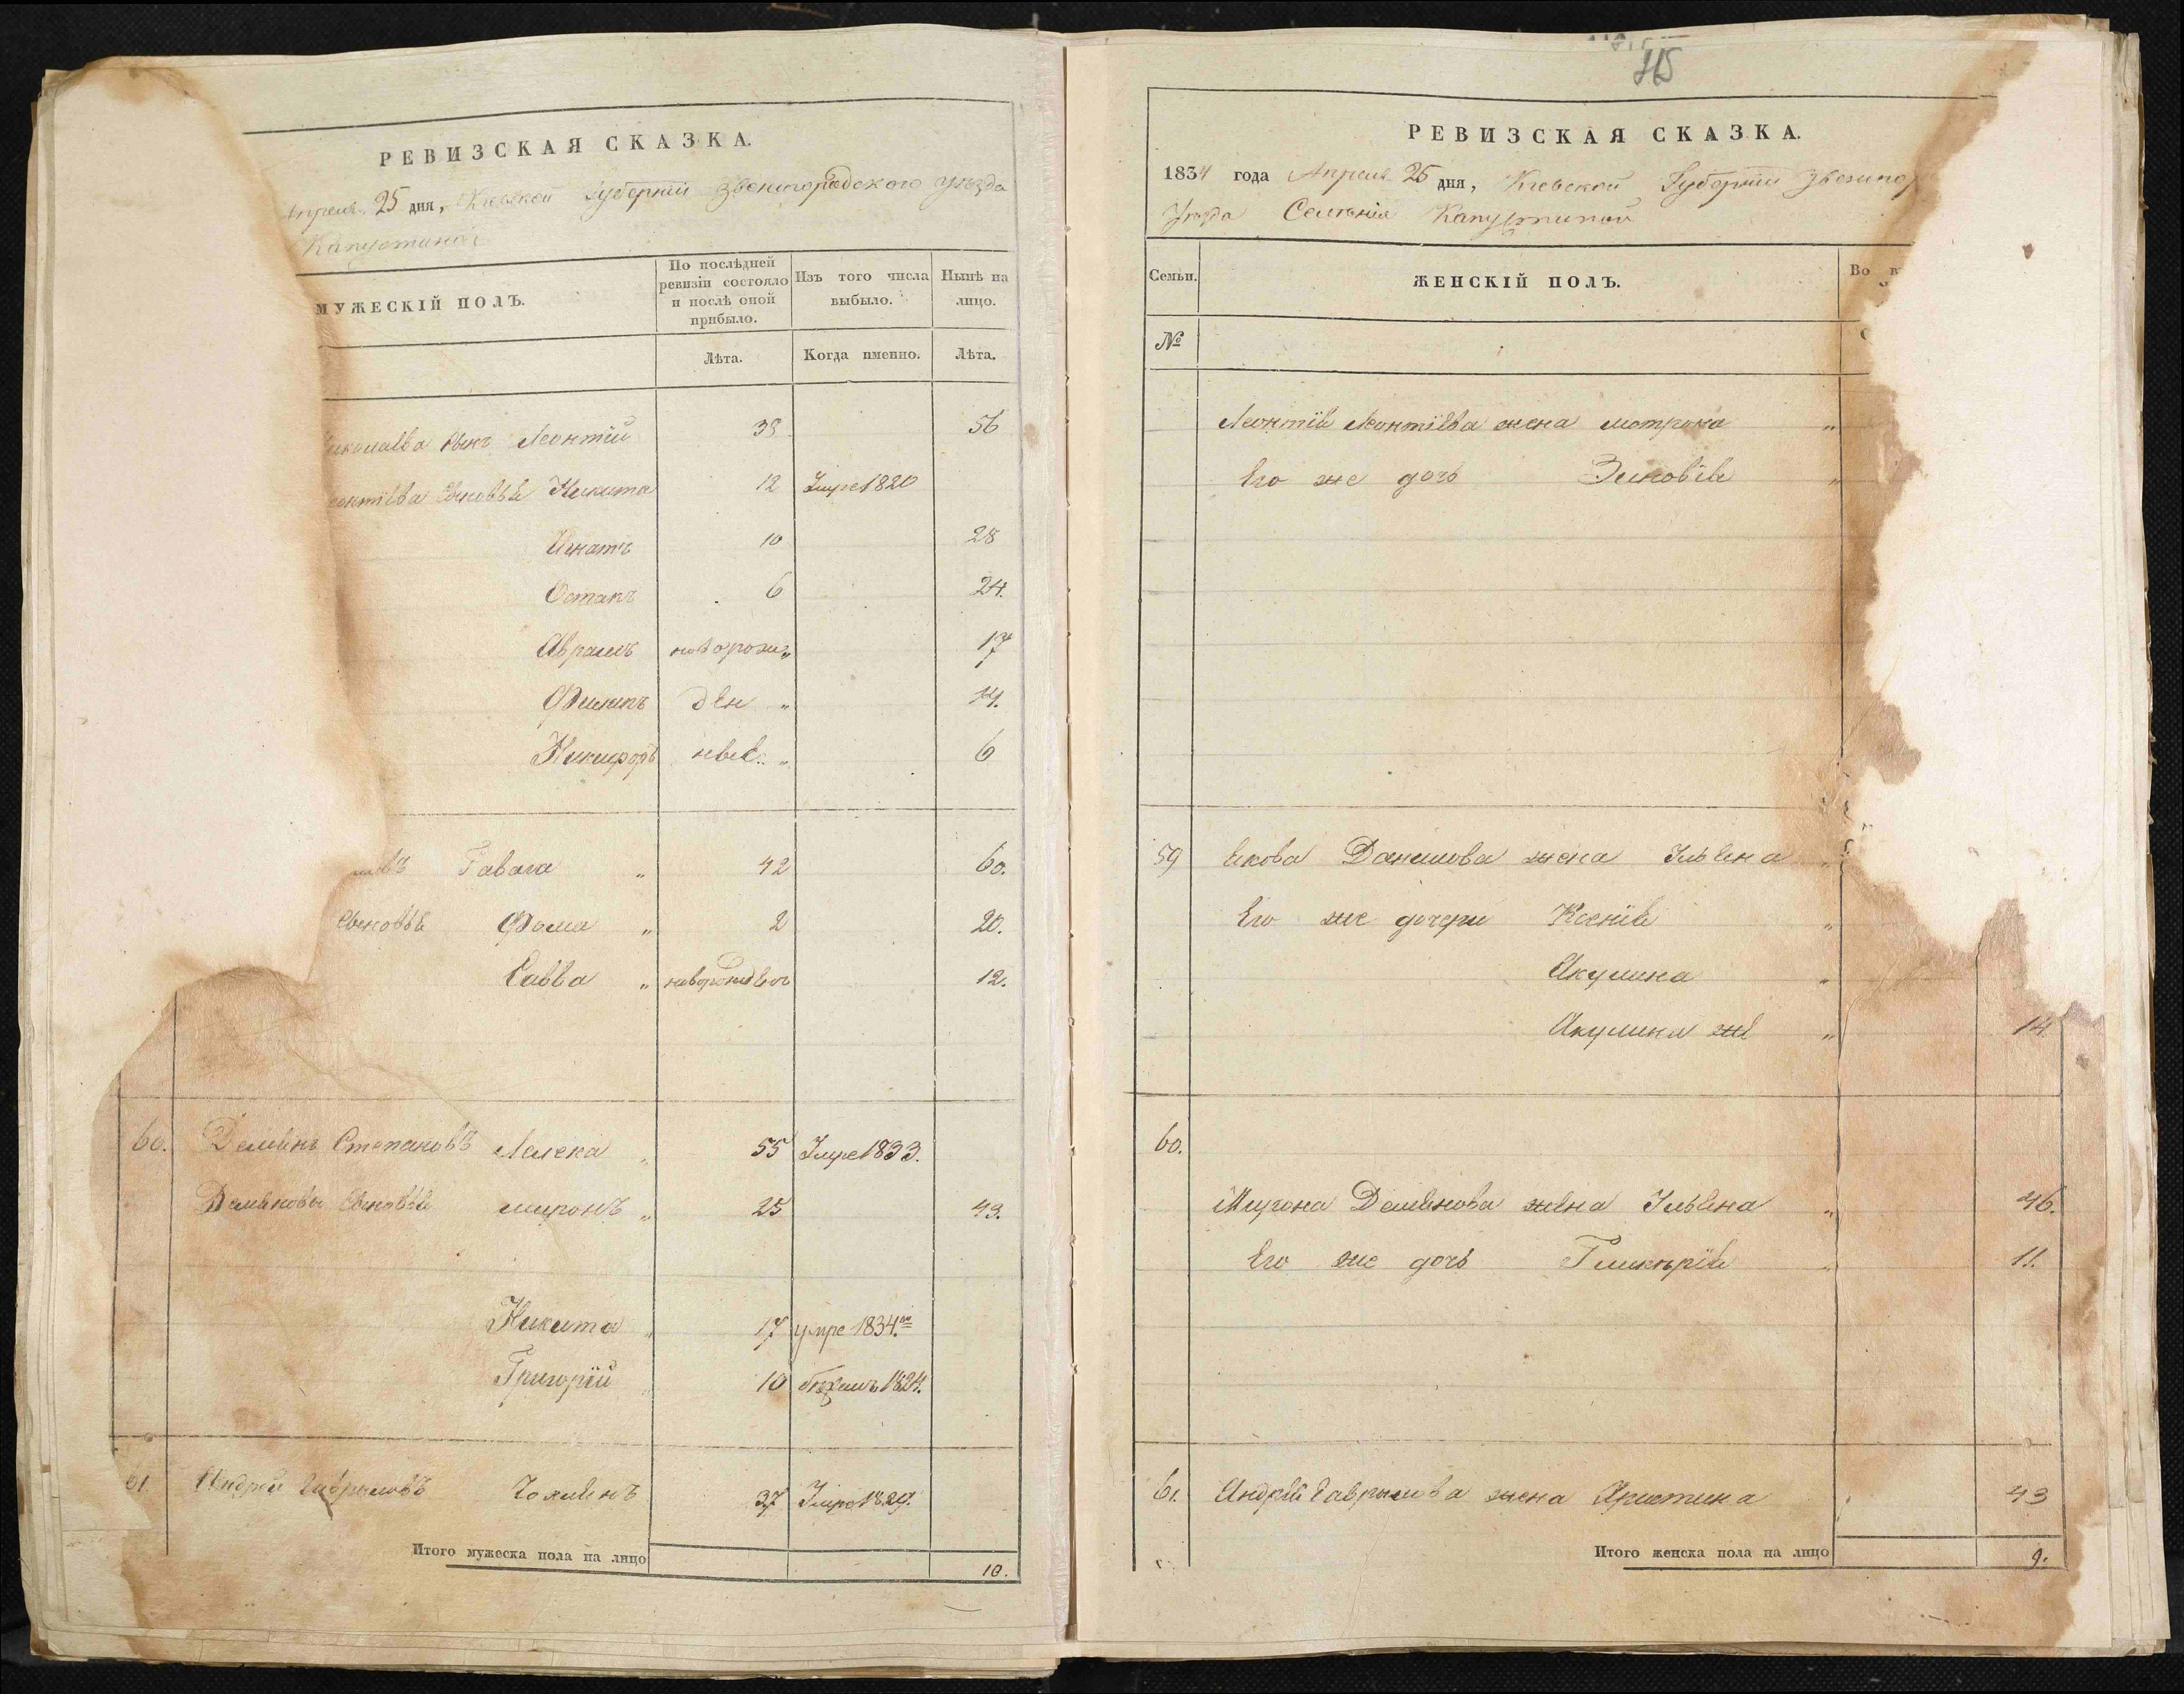 РЕВИЗСКАЯ СКАЗКА.
Апреля 25 дня, Киевской Губернии Звенигородского Уезда
Капустиной
МУЖЕСКІЙ ПОЛЪ.
По послѣдней ревизіи состояло и послѣ оной прибыло.
Изъ того числа выбыло.
Нынѣ на лицо.
Лѣта.
Когда именно.
Лѣта.
сынъ Леонтій 38 56
Никита 12 Умре 1820
Игнатъ 10 28
Остапъ 6 24.
Аврамъ новорож„ 17
Филипъ ден „ 14.
Никифоръ ные „ 6
Гавага „ 42 60.
Сыновья Фома „ 2 20.
Савва „ 12.
60. Демьянъ Степановъ 55 Умре 1833.
Демьяновы Сыновья миронъ „ 25 43.
Никита 17 умре 1834.го
Григорій 10 бѣжалъ 1824.
61 Андрей Гаврыловъ 37 Умре 1829.
Итого мужеска пола на лицо 10.
115
РЕВИЗСКАЯ СКАЗКА.
1834 года Апреля 25 дня, Киевской Губернии Звениго
Уезда Селенія Капустиной
Семьи.
ЖЕНСКІЙ ПОЛЪ.
Во
№
Леонтія Леонтіева жена мотрона „
Его же дочь Зиновія „
59 Данилова жена Ульяна „
Его же дочери Ксенія „
Акулина „
Акулина же „ 14.
60.
Мирона Демьянова жена Ульяна „ 46.
Его же дочь Гликерія „ 11.
61. Андрея Гаврылова жена Христина 43
Итого женска пола на лицо 9.